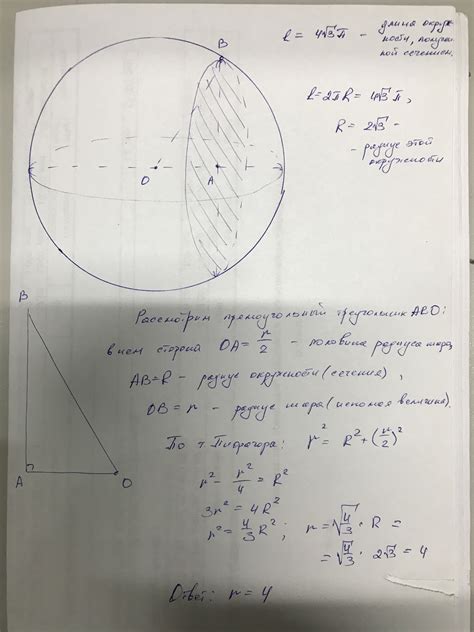 l = 4√3 π - длина окруж-
ности, получен-
ной сечением.
l = 2πR = 4√3 π,
R = 2√3 -
- радиус этой
окружности
B
O
A
B
A
O
Рассмотрим прямоугольный треугольник ABO:
в нем сторона OA = r/2 - половина радиуса шара,
AB = R - радиус окружности (сечения),
OB = r - радиус шара (искомая величина).
По т Пифагора: r² = R² + (r/2)²
r² - r²/4 = R²
3r² = 4R²
r² = 4/3 R²; r = √(4/3) · R =
= √(4/3) · 2√3 = 4
Ответ: r = 4